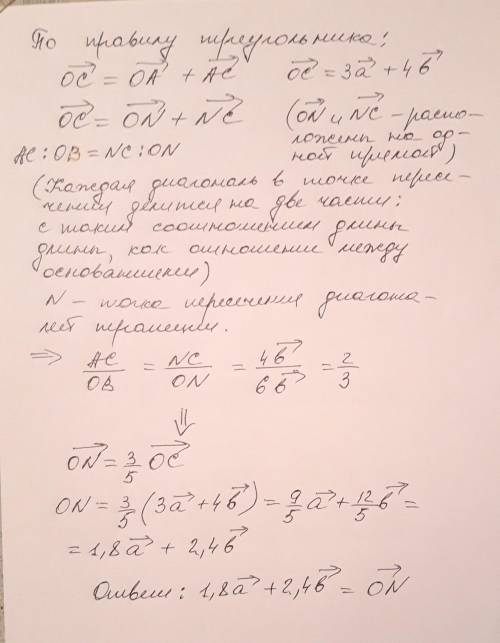 По правилу треугольника:
OC⃗ = OA⃗ + AC⃗    OC⃗ = 3a⃗ + 4b⃗
OC⃗ = ON⃗ + NC⃗    (ON⃗ и NC⃗ – распо-
ложены на од-
ной прямой)
AC : OB = NC : ON
(Каждая диагональ в точке пересе-
чения делится на две части:
с таким соотношением длины
длины, как отношение между
основаниями)
N – точка пересечения диагона-
лей трапеции.
⇒ AC/OB = NC/ON = 4b⃗/6b⃗ = 2/3
⇓
ON⃗ = 3/5 OC⃗
ON = 3/5 (3a⃗ + 4b⃗) = 9/5 a⃗ + 12/5 b⃗ =
= 1,8a⃗ + 2,4b⃗
Ответ: 1,8a⃗ + 2,4b⃗ = ON⃗